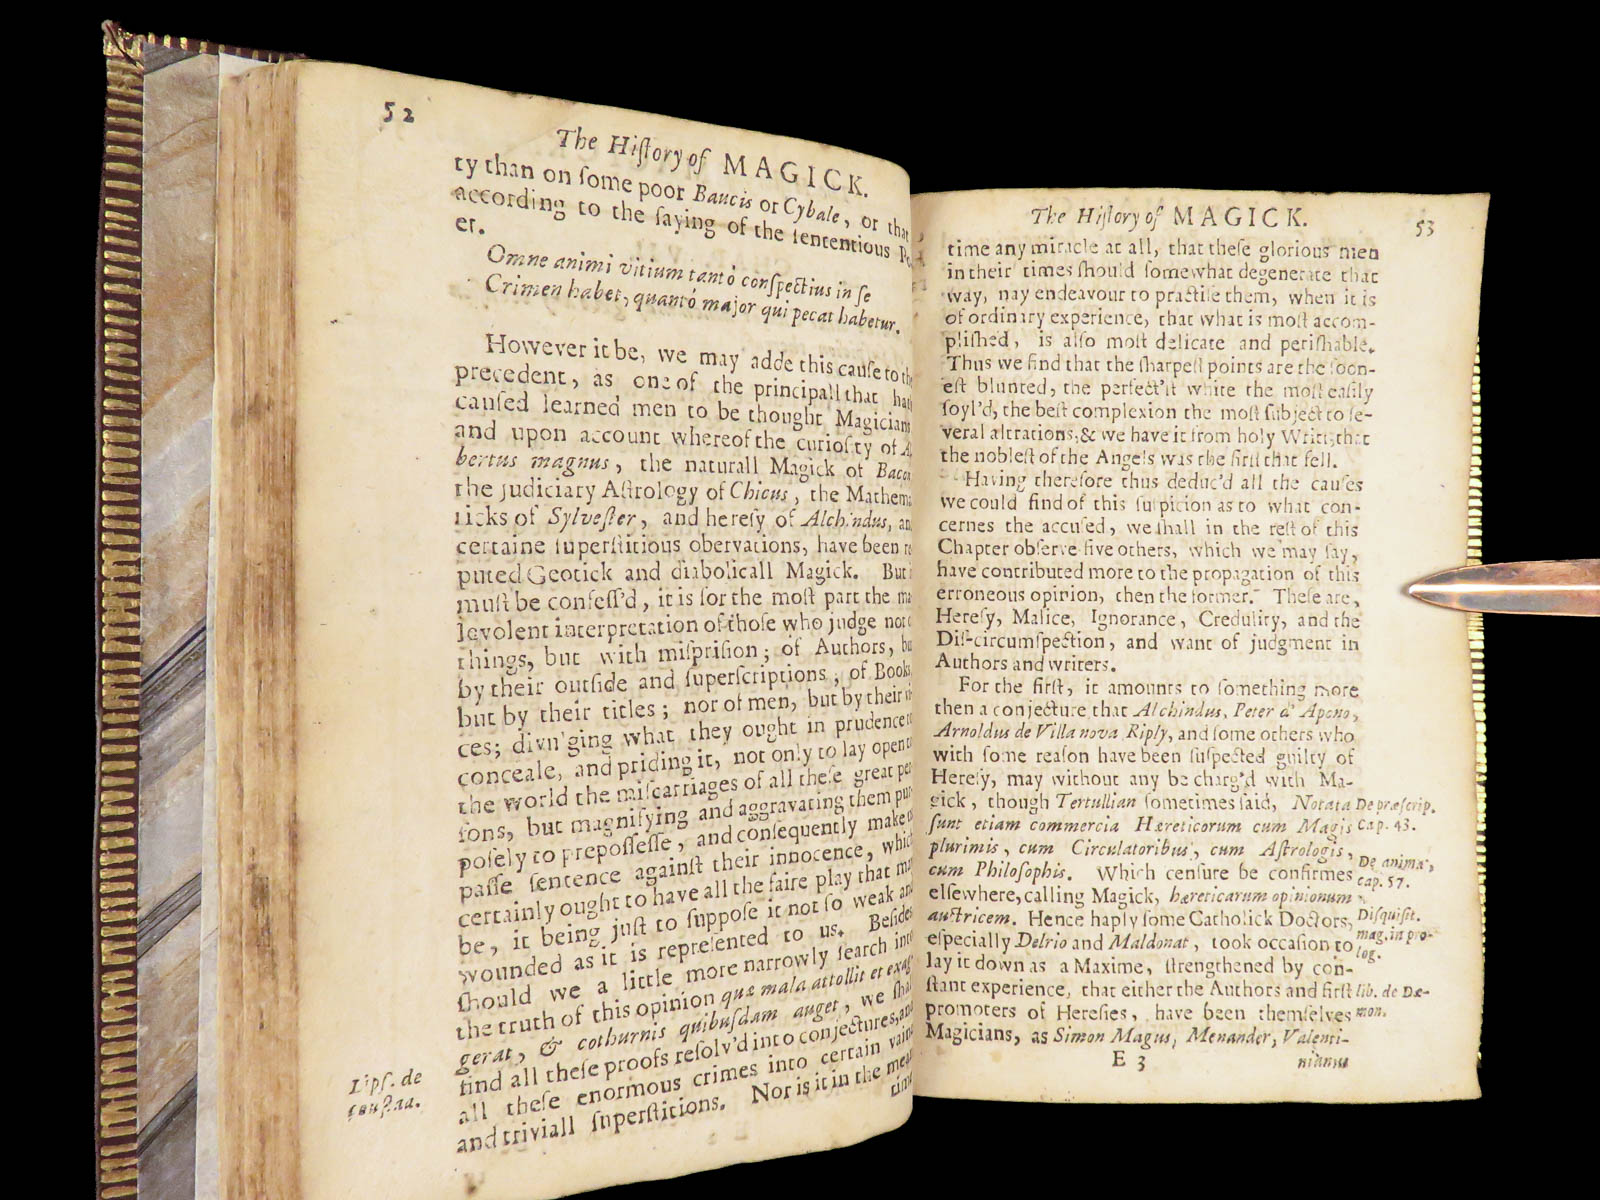 52
The Hiſtory of MAGICK.
ty than on ſome poor Baucis or Cybale, or that
according to the ſaying of the ſententious Po
et.
Omne animi vitium tantò conſpectius in ſe
Crimen habet, quantò major qui pecat habetur.
However it be, we may adde this cauſe to the
precedent, as one of the principall that hath
cauſed learned men to be thought Magicians
and upon account whereof the curioſty of A
bertus magnus, the naturall Magick of Bacon
the judiciary Aſtrology of Chicus, the Mathema
ticks of Sylveſter, and hereſy of Alchindus, an
certaine ſuperſtitious obervations, have been re
puted Geotick and diabolicall Magick. But i
muſt be confeſſ'd, it is for the moſt part the ma
levolent interpretation of thoſe who judge not o
things, but with miſpriſion; of Authors, bu
by their outſide and ſuperſcriptions; of Books
but by their titles; nor of men, but by their vi
ces; divu'ging what they ought in prudence to
conceale, and priding it, not only to lay open to
the world the miſcarriages of all theſe great per
ſons, but magnifying and aggravating them pur
poſely to prepoſſeſſe, and conſequently make to
paſſe ſentence againſt their innocence, which
certainly ought to have all the faire play that may
be, it being juſt to ſuppoſe it not ſo weak and
wounded as it is repreſented to us. Beſides
ſhould we a little more narrowly ſearch into
the truth of this opinion quæ mala attollit et exag
gerat, & cothurnis quibuſdam auget, we ſhal
find all theſe proofs reſolv'd into conjectures, and
all theſe enormous crimes into certain vaine
and triviall ſuperſtitions. Nor is it in the mean
time
Lipſ. de
53
The Hiſtory of MAGICK.
time any miracle at all, that theſe glorious men
in their times ſhould ſomewhat degenerate that
way, nay endeavour to practiſe them, when it is
of ordinary experience, that what is moſt accom-
pliſhed, is alſo moſt delicate and periſhable.
Thus we find that the ſharpeſt points are the ſoon-
eſt blunted, the perfect'ſt white the moſt eaſily
ſoyl'd, the beſt complexion the moſt ſubject to ſe-
veral altrations, & we have it from holy Writt, that
the nobleſt of the Angels was the firſt that fell.
Having therefore thus deduc'd all the cauſes
we could find of this ſuſpicion as to what con-
cernes the accuſed, we ſhall in the reſt of this
Chapter obſerve five others, which we may ſay,
have contributed more to the propagation of this
erroneous opinion, then the former. Theſe are,
Hereſy, Malice, Ignorance, Credulity, and the
Diſ-circumſpection, and want of judgment in
Authors and writers.
For the firſt, it amounts to ſomething more
then a conjecture that Alchindus, Peter d' Apono,
Arnoldus de Villa nova Riply, and ſome others who
with ſome reaſon have been ſuſpected guilty of
Hereſy, may without any be charg'd with Ma-
gick, though Tertullian ſometimes ſaid, Notata
ſunt etiam commercia Hæreticorum cum Magis
plurimis, cum Circulatoribus, cum Aſtrologis,
cum Philoſophis. Which cenſure he confirmes
elſewhere, calling Magick, hæreticarum opinionum
auctricem. Hence haply ſome Catholick Doctors,
eſpecially Delrio and Maldonat, took occaſion to
lay it down as a Maxime, ſtrengthened by con-
ſtant experience, that either the Authors and firſt
promoters of Hereſies, have been themſelves
Magicians, as Simon Magus, Menander, Valenti-
E 3
nianus
De præſcrip.
Cap. 43.
De anima,
cap. 57.
Diſquiſit.
mag. in pro-
log.
lib. de Dæ-
mon.